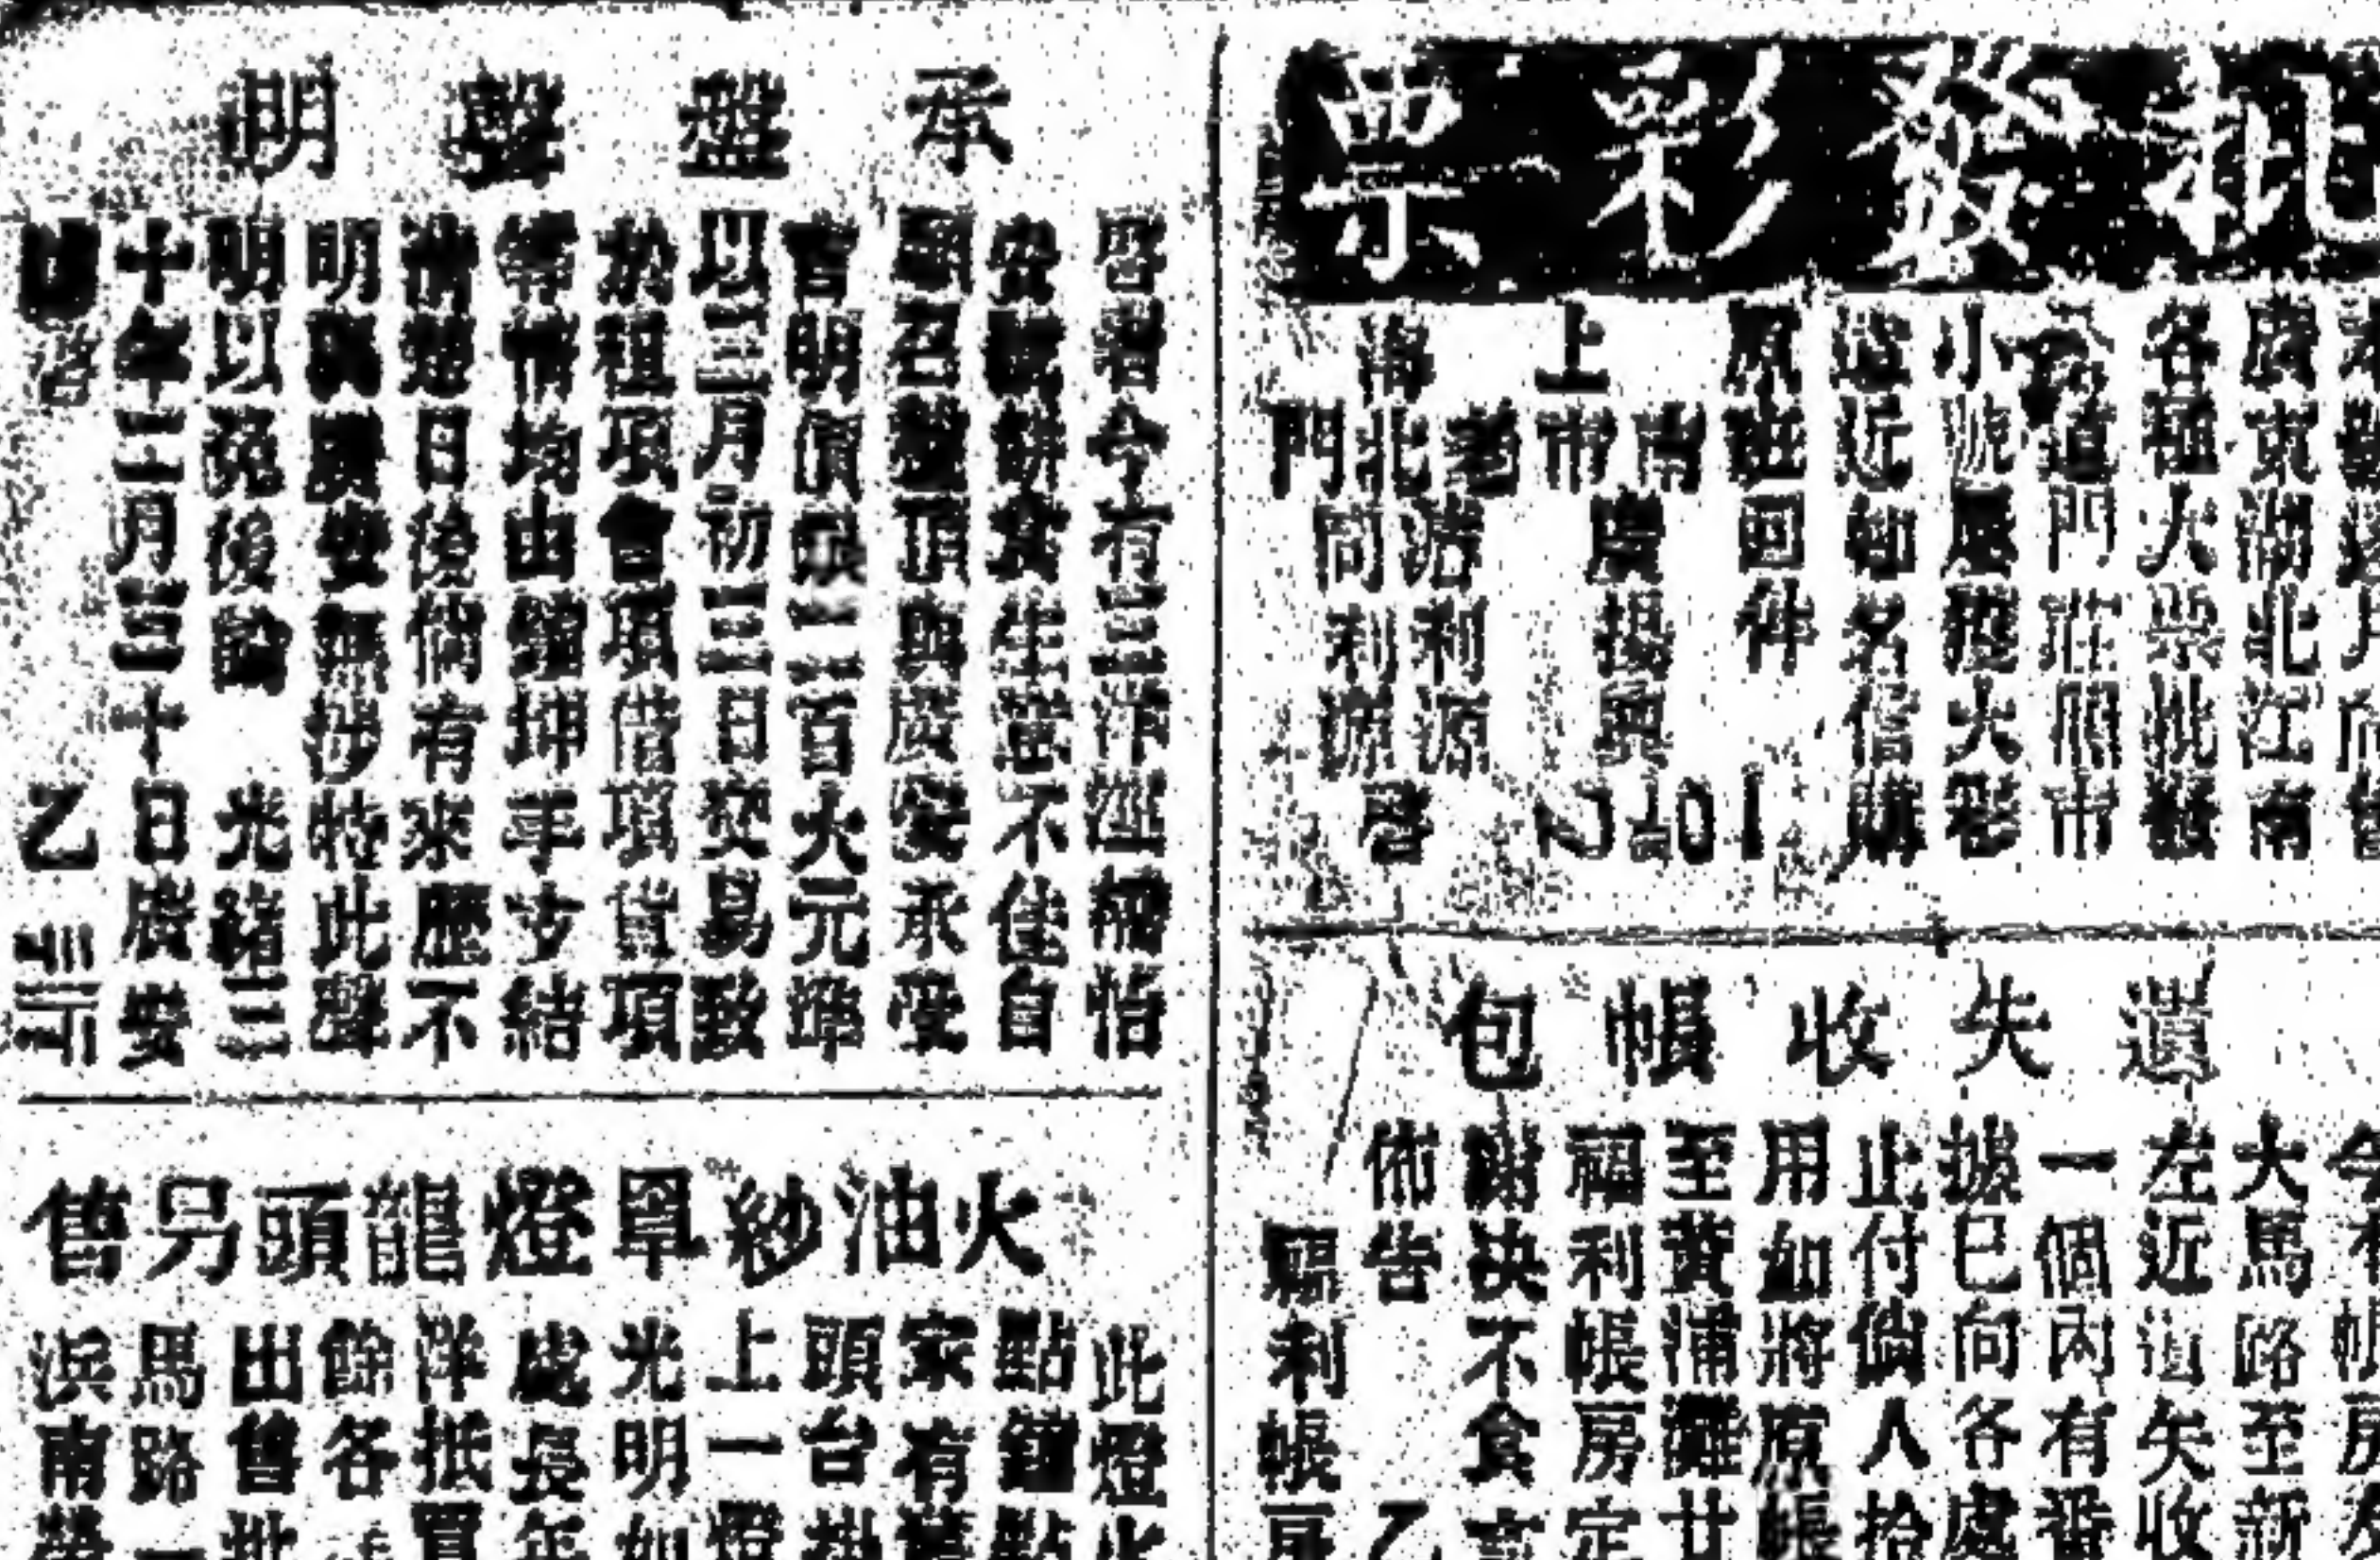 批發彩票
廣東湖北江南
各種大票批發
道門莊照市
小號屢獲大彩
遠近知名信購
原班回件
上海
南市廣揚興
老北門
利源
同利源
啓
遺失收帳包
大馬路至新
左近遺失收
一個內有番
據已向各處
止付倘人拾
用如將原帳
至黃浦灘廿
福利帳房定
謝決不食言
佈告
乙
福利帳房
承盤聲明
啓者今有三洋涇橋怡
安號餅食生意不佳自
願召盤頂與廣安承受
言明價銀一百大元準
以三月初三日交易致
於租項會項借項貨項
等情均由鋪坤手步結
清楚日後倘有來歷不
明與廣安無涉特此聲
明以免後論 光緒三
十年二月三十日廣安
啓 乙
火油紗罩燈龍頭另售
此燈火
點鐘點
家有
頭台掛
上一燈
光明如
處長年
洋抵買
餘各
出售批
馬路一
浜南